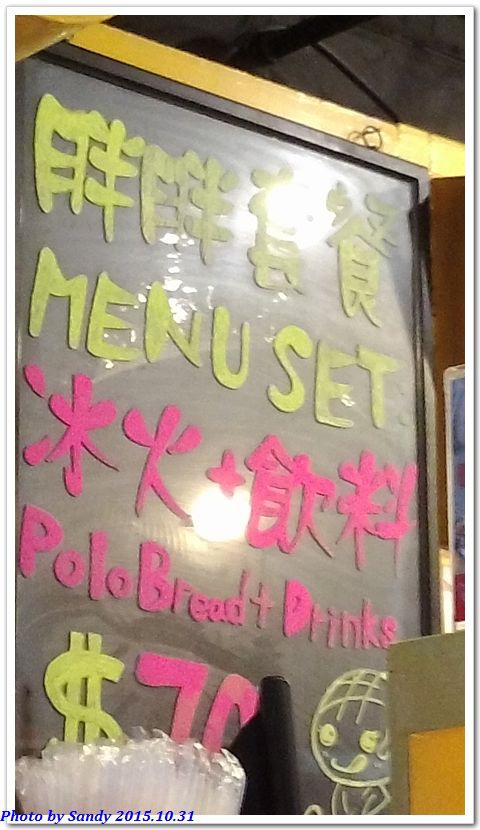 胖胖套餐
MENU SET
冰火+飲料
Polo Bread + Drinks
$70
Photo by Sandy 2015.10.31